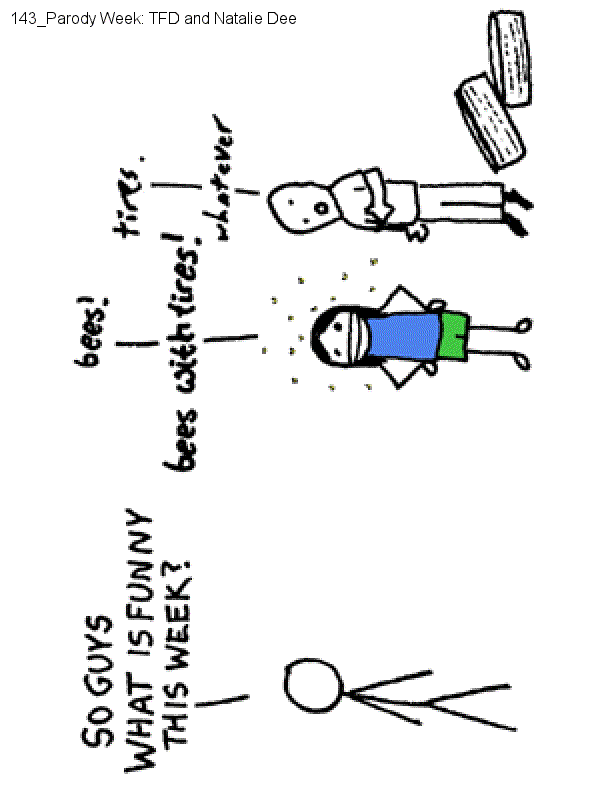 143_Parody Week: TFD and Natalie Dee
SO GUYS
WHAT IS FUNNY
THIS WEEK?
bees!
tires.
bees with tires!
whatever